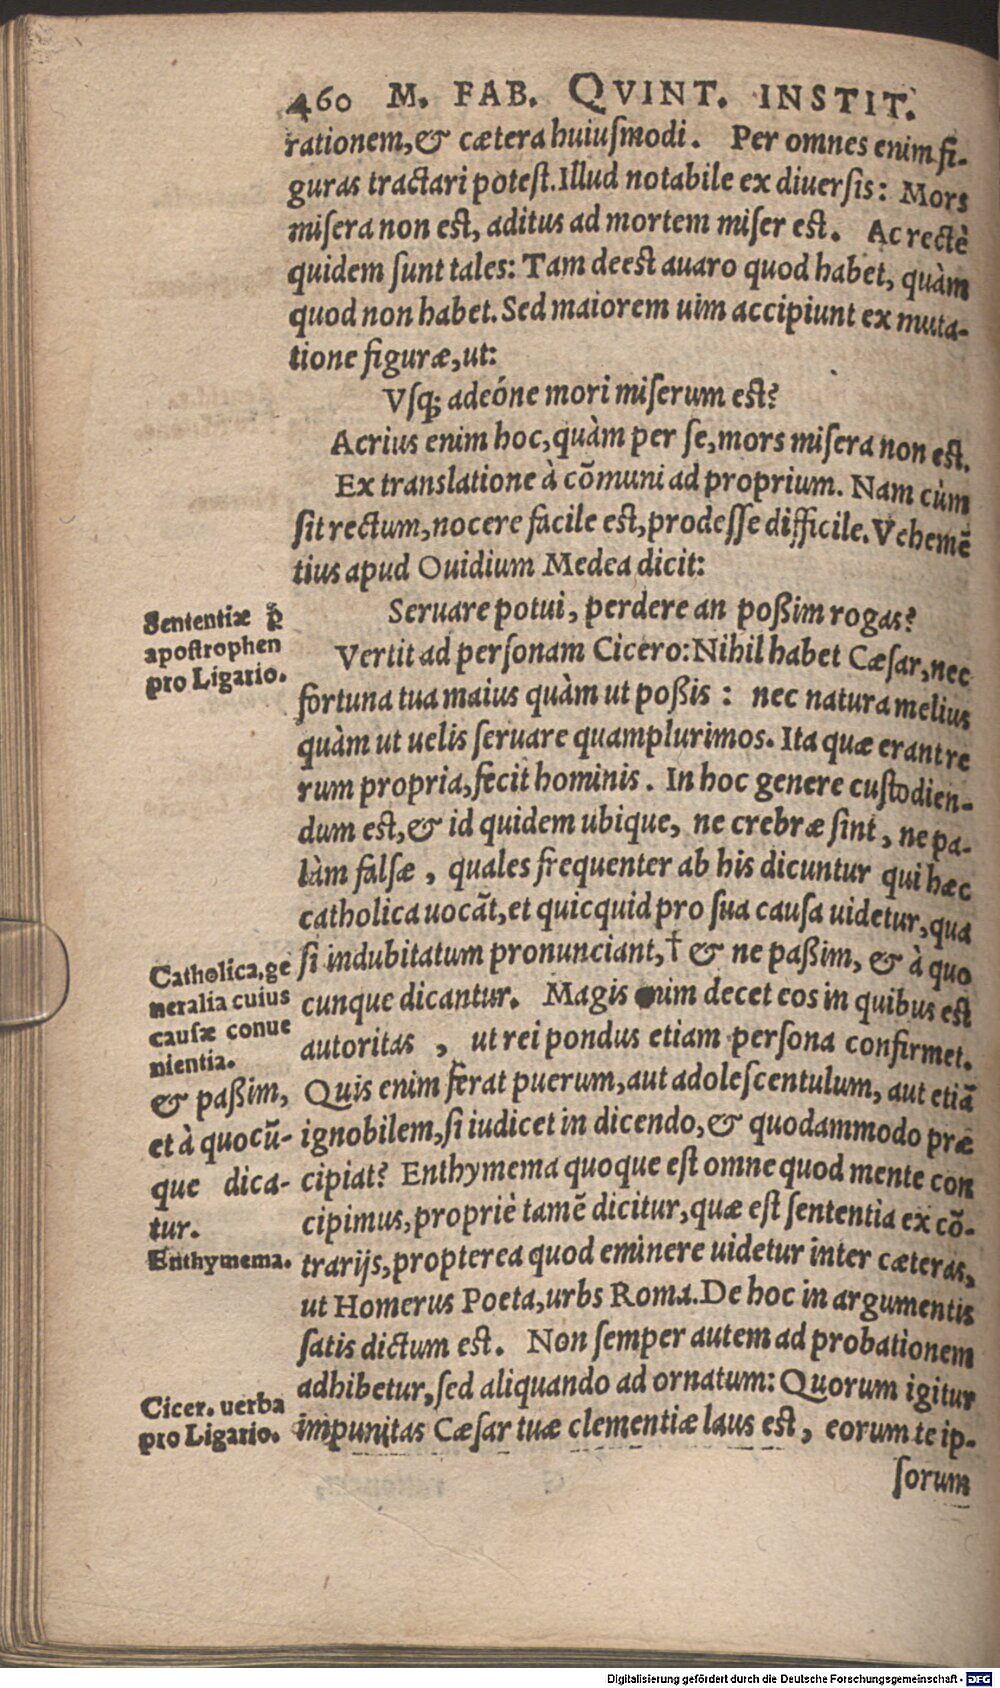 460 M. FAB. QVINT. INSTIT.
rationem,& cætera huiuſmodi. Per omnes enim fi-
guras tractari poteſt. Illud notabile ex diuerſis: Mors
miſera non eſt, aditus ad mortem miſer eſt. Ac rectè
quidem ſunt tales: Tam deeſt auaro quod habet, quàm
quod non habet. Sed maiorem uim accipiunt ex muta-
tione figuræ, ut:
Vſq; adeóne mori miſerum eſt?
Acrius enim hoc, quàm per ſe, mors miſera non eſt.
Ex translatione à cõmuni ad proprium. Nam cùm
ſit rectum, nocere facile eſt, prodeſſe difficile. Vehemẽ
tius apud Ouidium Medea dicit:
Seruare potui, perdere an poßim rogas?
Sententiæ p̃
apoſtrophen
pro Ligario.
Vertit ad perſonam Cicero: Nihil habet Cæſar, nec
fortuna tua maius quàm ut poßis: nec natura melius
quàm ut uelis ſeruare quamplurimos. Ita quæ erant re
rum propria, fecit hominis. In hoc genere cuſtodien-
dum eſt, & id quidem ubique, ne crebræ ſint, ne pa-
làm falſæ, quales frequenter ab his dicuntur qui hæc
catholica uocãt, et quicquid pro ſua cauſa uidetur, qua
ſi indubitatum pronunciant,† & ne paßim, & à quo
cunque dicantur. Magis enim decet eos in quibus eſt
autoritas, ut rei pondus etiam perſona confirmet.
Catholica, ge
neralia cuius
cauſæ conue
nientia.
& paßim,
et à quocũ-
que dica-
tur.
Quis enim ferat puerum, aut adoleſcentulum, aut etiã
ignobilem, ſi iudicet in dicendo, & quodammodo præ
cipiat? Enthymema quoque eſt omne quod mente con
cipimus, propriè tamẽ dicitur, quæ eſt ſententia ex cõ-
Enthymema.
trarijs, propterea quod eminere uidetur inter cæteras,
ut Homerus Poeta, urbs Roma. De hoc in argumentis
ſatis dictum eſt. Non ſemper autem ad probationem
adhibetur, ſed aliquando ad ornatum: Quorum igitur
Cicer. uerba
pro Ligario.
impunitas Cæſar tuæ clementiæ laus eſt, eorum te ip-
ſorum
Digitalisierung gefördert durch die Deutsche Forschungsgemeinschaft - DFG